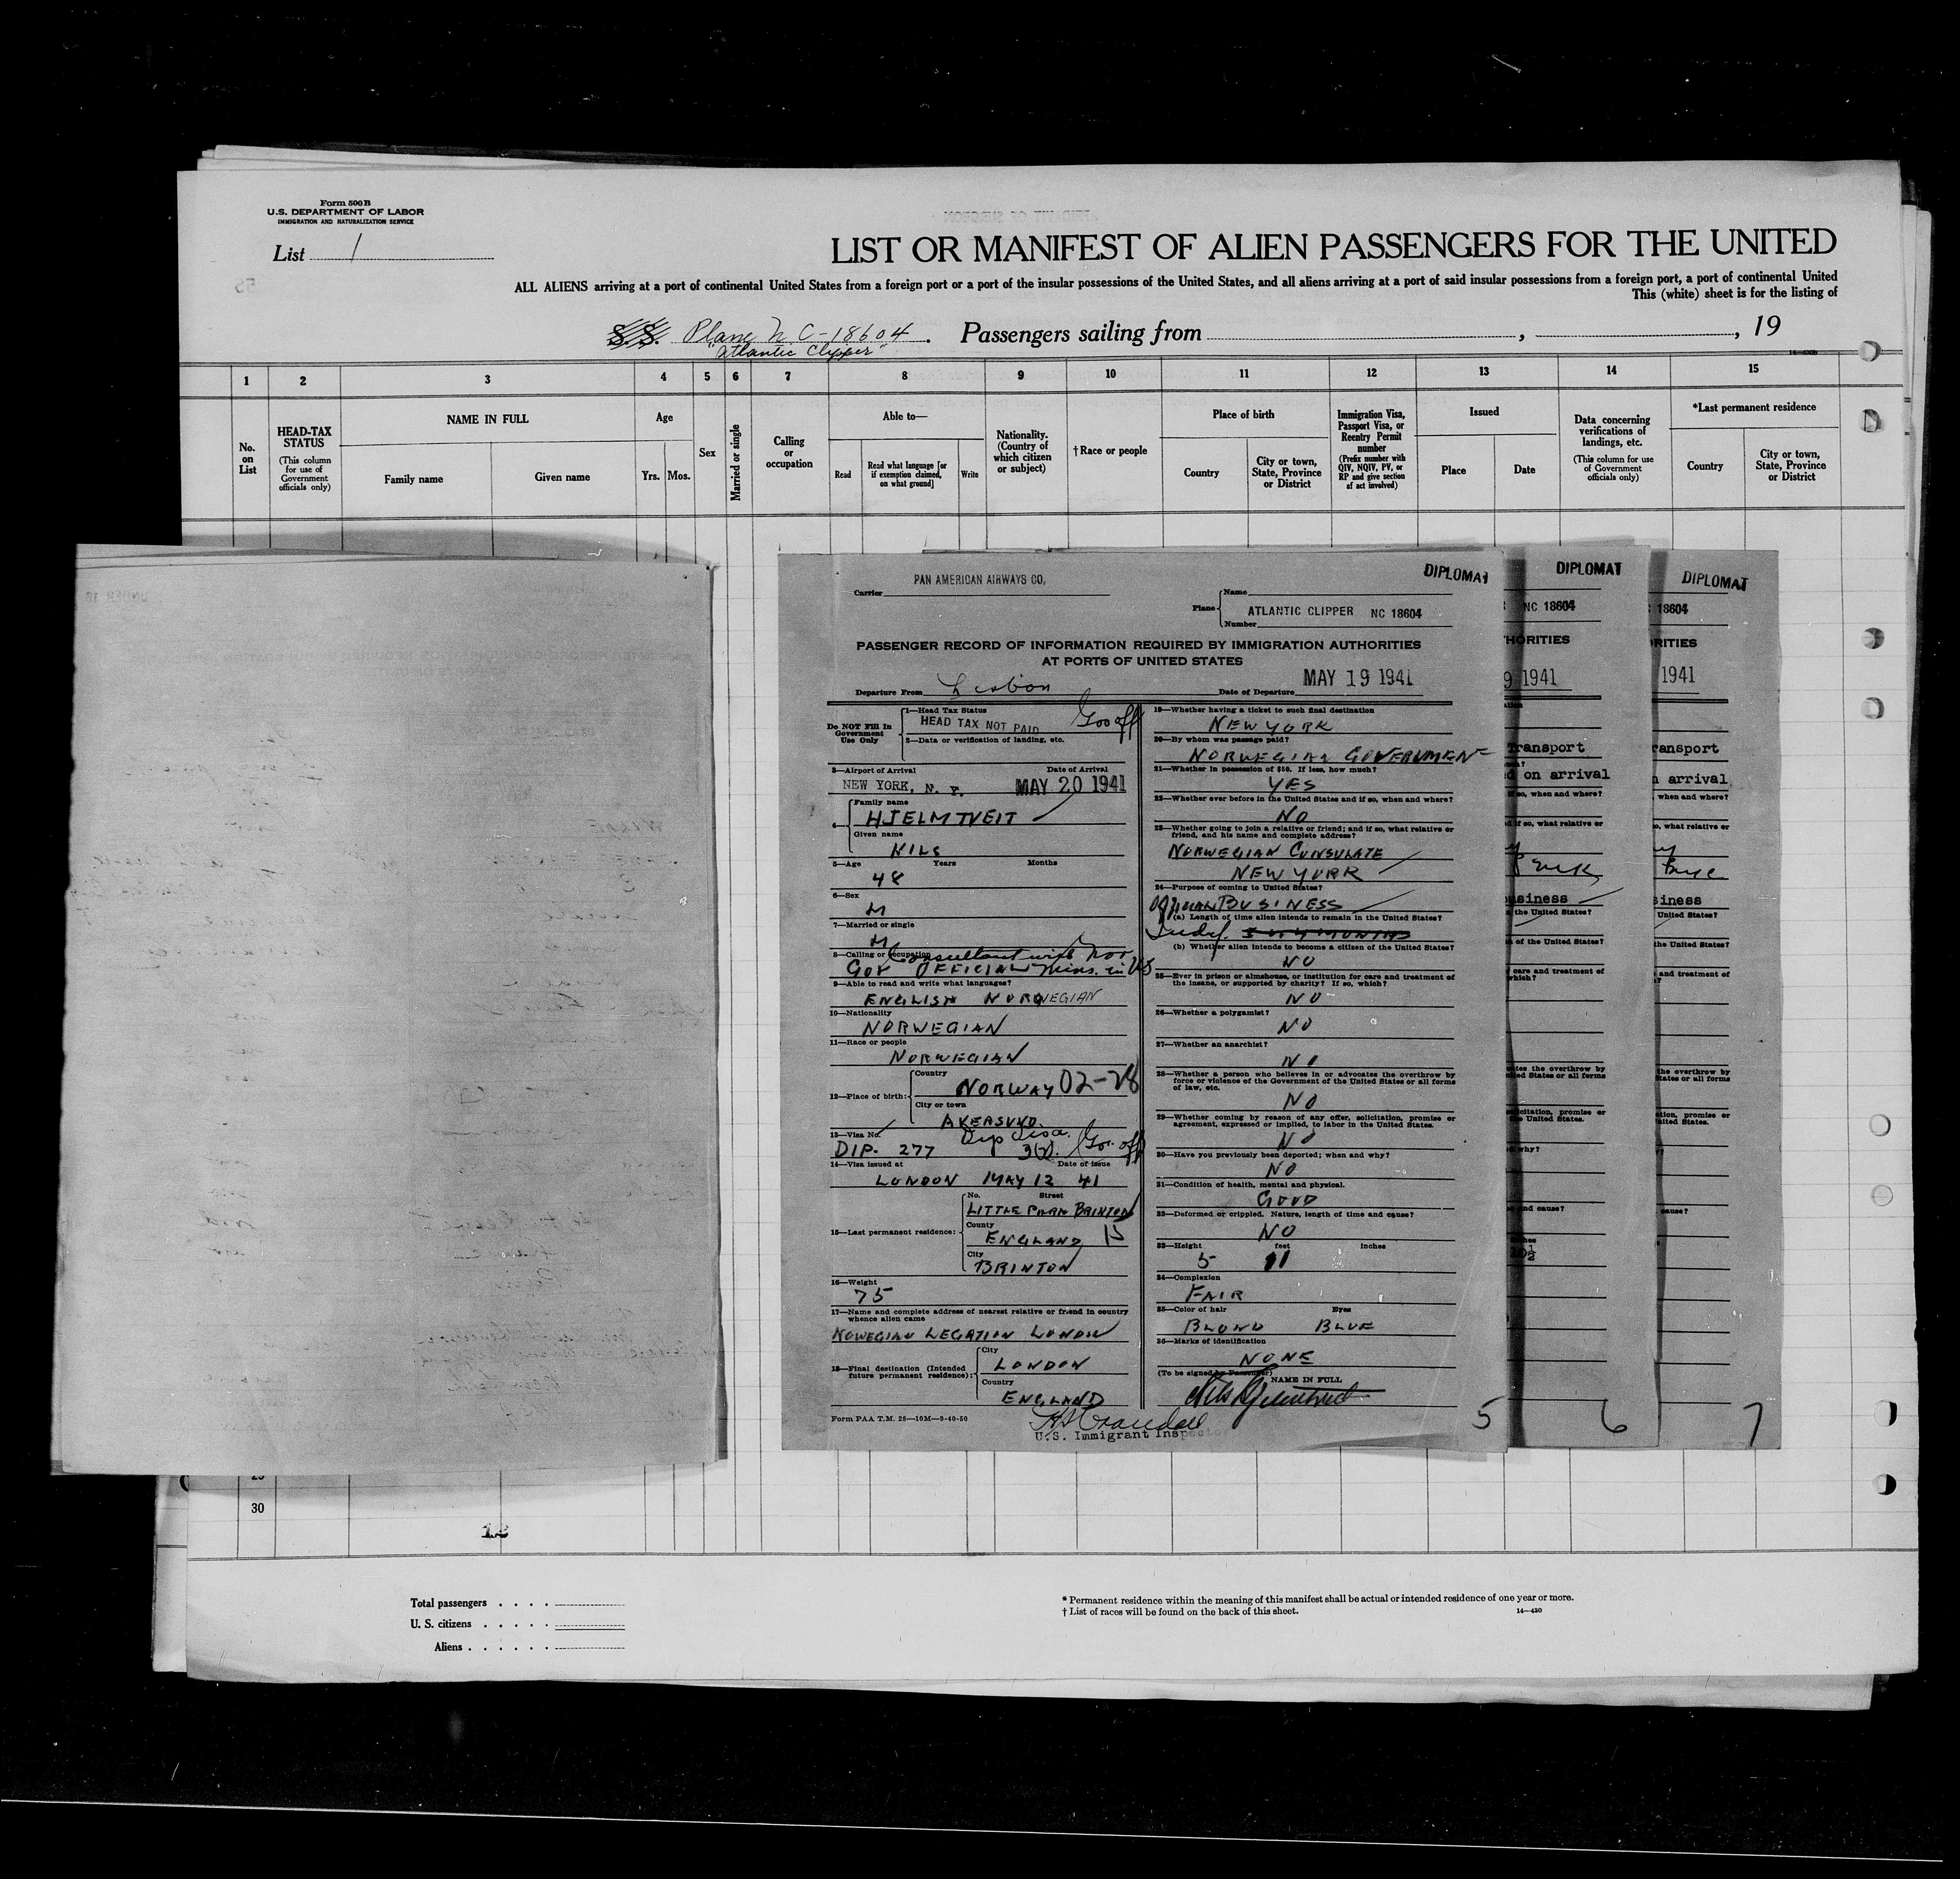 Form 500 B
U.S. DEPARTMENT OF LABOR
IMMIGRATION AND NATURALIZATION SERVICE
List 1
LIST OR MANIFEST OF ALIEN PASSENGERS FOR THE UNITED
ALL ALIENS arriving at a port of continental United States from a foreign port or a port of the insular possessions of the United States, and all aliens arriving at a port of said insular possessions from a foreign port, a port of continental United
This (white) sheet is for the listing of
S.S. Plane N C-18604. Passengers sailing from , , 19
"Atlantic Clipper"
1 2 3 4 5 6 7 8 9 10 11 12 13 14 15
No. on List
HEAD-TAX STATUS
(This column for use of Government officials only)
NAME IN FULL
Family name Given name
Age
Yrs. Mos.
Sex
Married or single
Calling or occupation
Able to—
Read
Read what language [or if exemption claimed, on what ground]
Write
Nationality. (Country of which citizen or subject)
†Race or people
Place of birth
Country
City or town, State, Province or District
Immigration Visa, Passport Visa, or Reentry Permit number
(Prefix number with QIV, NQIV, PV, or RP and give section of act involved)
Issued
Place Date
Data concerning verifications of landings, etc.
(This column for use of Government officials only)
*Last permanent residence
Country
City or town, State, Province or District
PAN AMERICAN AIRWAYS CO.
Carrier
DIPLOMAT
Plane
Name
ATLANTIC CLIPPER NC 18604
Number
PASSENGER RECORD OF INFORMATION REQUIRED BY IMMIGRATION AUTHORITIES
AT PORTS OF UNITED STATES
Departure From Lisbon
Date of Departure MAY 19 1941
Do NOT Fill In Government Use Only
1—Head Tax Status
HEAD TAX NOT PAID Gov off
2—Data or verification of landing, etc.
3—Airport of Arrival Date of Arrival
NEW YORK, N. Y. MAY 20 1941
4— Family name
HJELMTVEIT
Given name
NILS
5—Age Years Months
48
6—Sex
M
7—Married or single
M
8—Calling or occupation Consultant with Nor.
GOV OFFICIAL Mins. in US
9—Able to read and write what languages?
ENGLISH NORWEGIAN
10—Nationality
NORWEGIAN
11—Race or people
NORWEGIAN
12—Place of birth:
Country
NORWAY 02-28
City or town
13—Visa No. Dip Visa.
DIP. 277 3(1). Gov. off
14—Visa issued at Date of issue
LONDON MAY 12 41
15—Last permanent residence:
No. Street
LITTLE PARK BRINTON
County
ENGLAND 15
City
BRINTON
16—Weight
75
17—Name and complete address of nearest relative or friend in country whence alien came
NOWEGIAN LEGATION LONDON
18—Final destination (Intended future permanent residence):
City
LONDON
Country
ENGLAND
Form PAA T.M. 28—10M—9-40-50
19—Whether having a ticket to such final destination
NEW YORK
20—By whom was passage paid?
NORWEGIAN GOVERNMENT
21—Whether in possession of $50. If less, how much?
YES
22—Whether ever before in the United States and if so, when and where?
NO
23—Whether going to join a relative or friend; and if so, what relative or friend, and his name and complete address?
NORWEGIAN CONSULATE
NEW YORK
24—Purpose of coming to United States?
Official BUSINESS
(a) Length of time alien intends to remain in the United States?
Indef.
(b) Whether alien intends to become a citizen of the United States?
NO
25—Ever in prison or almshouse, or institution for care and treatment of the insane, or supported by charity? If so, which?
NO
26—Whether a polygamist?
NO
27—Whether an anarchist?
NO
28—Whether a person who believes in or advocates the overthrow by force or violence of the Government of the United States or all forms of law, etc.
NO
29—Whether coming by reason of any offer, solicitation, promise or agreement, expressed or implied, to labor in the United States.
NO
30—Have you previously been deported; when and why?
NO
31—Condition of health, mental and physical.
GOOD
32—Deformed or crippled. Nature, length of time and cause?
NO
33—Height feet inches
5 11
34—Complexion
FAIR
35—Color of hair Eyes
BLOND BLUE
36—Marks of identification
NONE
(To be signed by Passenger)
NAME IN FULL
Nils Hjelmtveit
H Crandall
U.S. Immigrant Inspector
5
DIPLOMAT
NC 18604
HORITIES
9 1941
Transport
on arrival
York
business
10½
6
DIPLOMAT
18604
RITIES
1941
ransport
arrival
siness
7
29
30
Total passengers . . . .
U. S. citizens . . . . .
Aliens . . . . . .
* Permanent residence within the meaning of this manifest shall be actual or intended residence of one year or more.
† List of races will be found on the back of this sheet.
14—420